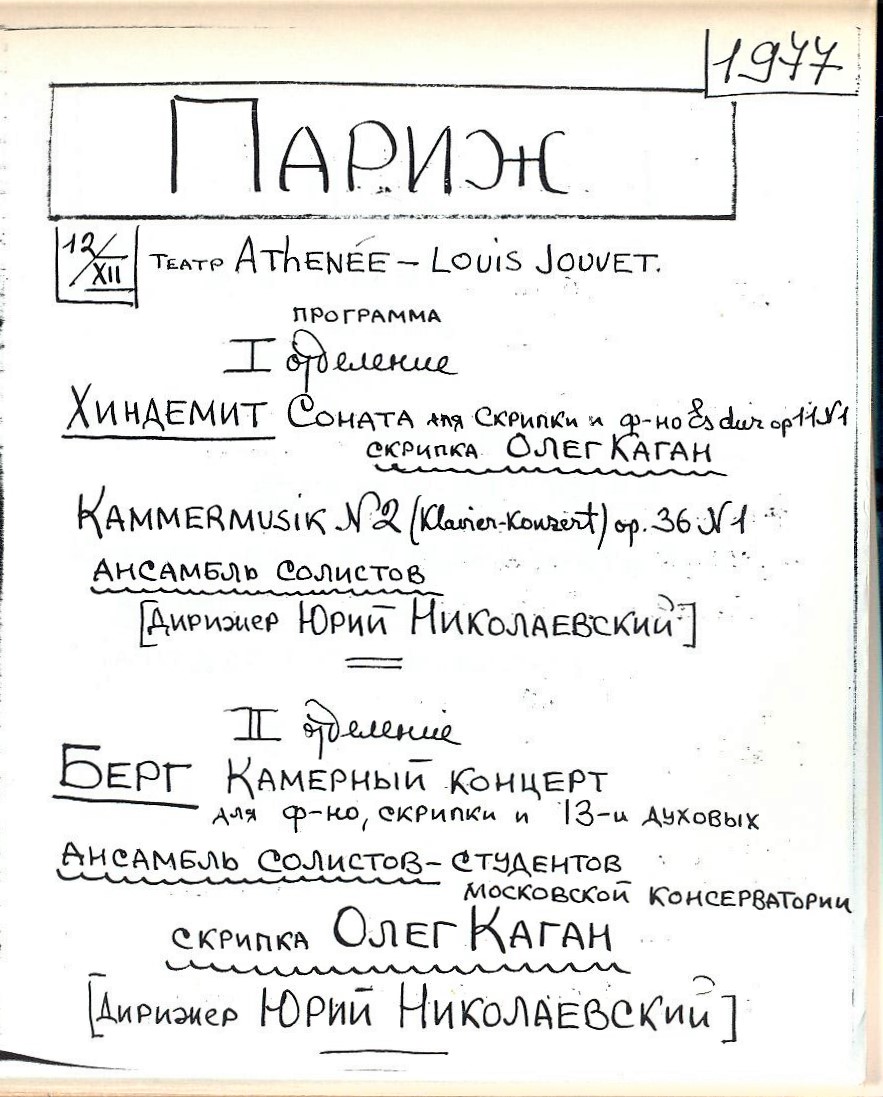 1977
ПАРИЖ
12/XII ТЕАТР ATHENÉE – LOUIS JOUVET.
ПРОГРАММА
I отделение
ХИНДЕМИТ СОНАТА для СКРИПКИ и ф-но Es dur op 11 N1
СКРИПКА ОЛЕГ КАГАН
KAMMERMUSIK N2 (Klavier-Konzert) op. 36 N1
АНСАМБЛЬ СОЛИСТОВ
[Дирижер ЮРИЙ НИКОЛАЕВСКИЙ]
II отделение
БЕРГ КАМЕРНЫЙ КОНЦЕРТ
для ф-но, СКРИПКИ и 13-и ДУХОВЫХ
АНСАМБЛЬ СОЛИСТОВ – СТУДЕНТОВ
МОСКОВСКОЙ КОНСЕРВАТОРИИ
СКРИПКА ОЛЕГ КАГАН
[Дирижер ЮРИЙ НИКОЛАЕВСКИЙ]